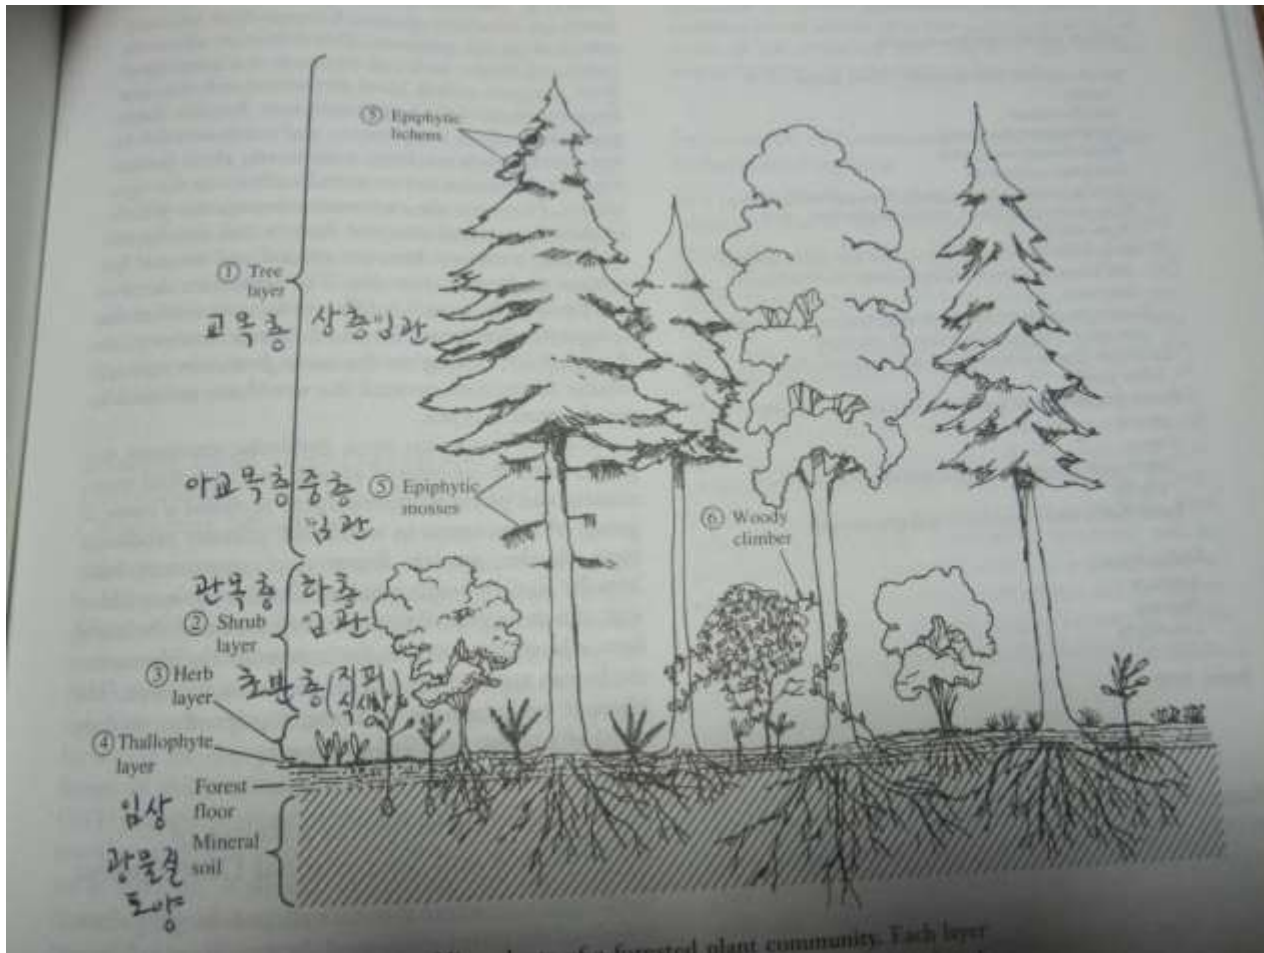 ⑤ Epiphytic
lichens
① Tree
layer
교목층 상층임관
아교목층 중층
임관
⑤ Epiphytic
mosses
⑥ Woody
climber
관목층 하층
임관
② Shrub
layer
③ Herb
layer
초본층(지피
식생)
④ Thallophyte
layer
Forest
floor
임상
Mineral
soil
광물질
토양
of a forested plant community. Each layer